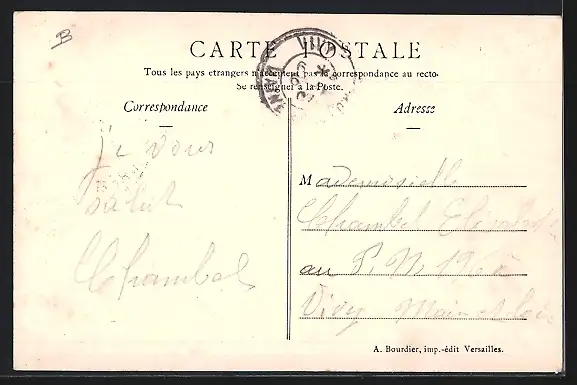 B
CARTE POSTALE
Tous les pays etrangers n'acceptent pas la correspondance au recto.
Se renseigner à la Poste.
Correspondance
Adresse
je vous
salut
Chambel
Mademoiselle
Chambel
au P. N.
Vivy Main et Loire
A. Bourdier, imp.-édit Versailles.